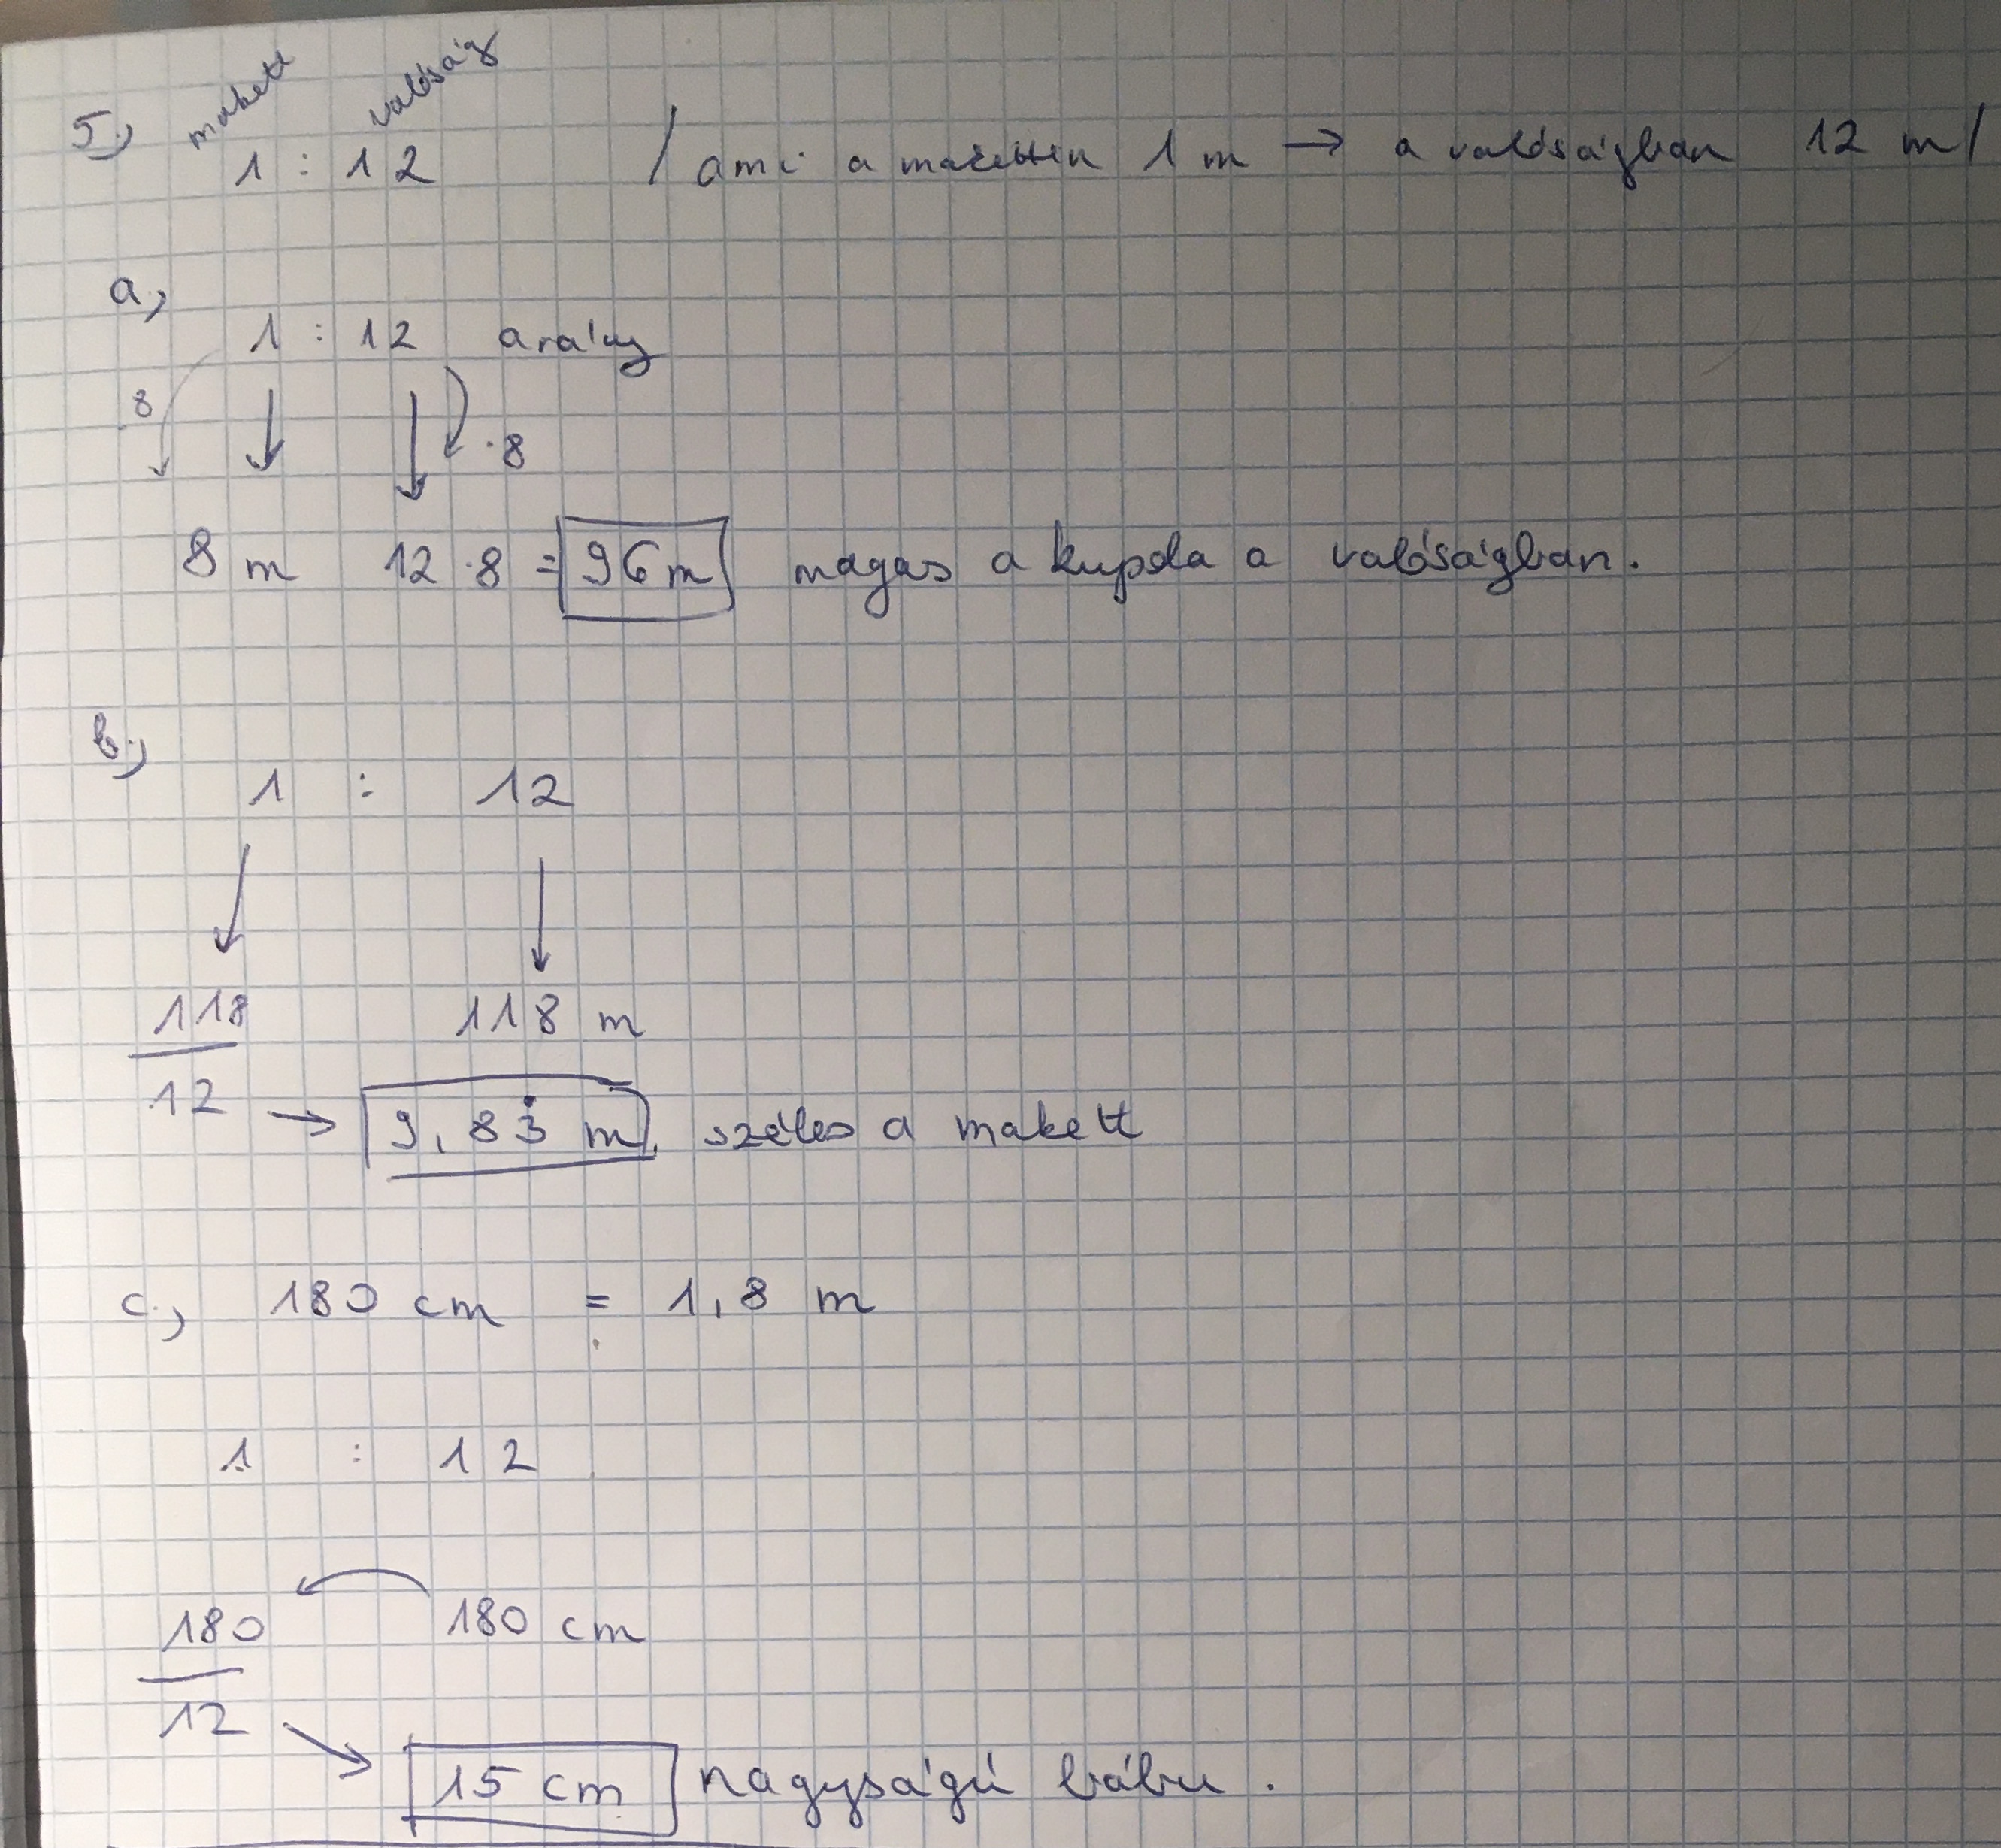 5.,
makett valóság
1 : 12 / ami a maketten 1 m → a valóságban 12 m /
a,
1 : 12 arány
8
·8
8 m 12 · 8 = 96 m magas a kupola a valóságban.
b.,
1 : 12
118 118 m
12 → 9,83̇ m széles a makett
c., 180 cm = 1,8 m
1 : 12
180 180 cm
12
15 cm nagyságú bábu.